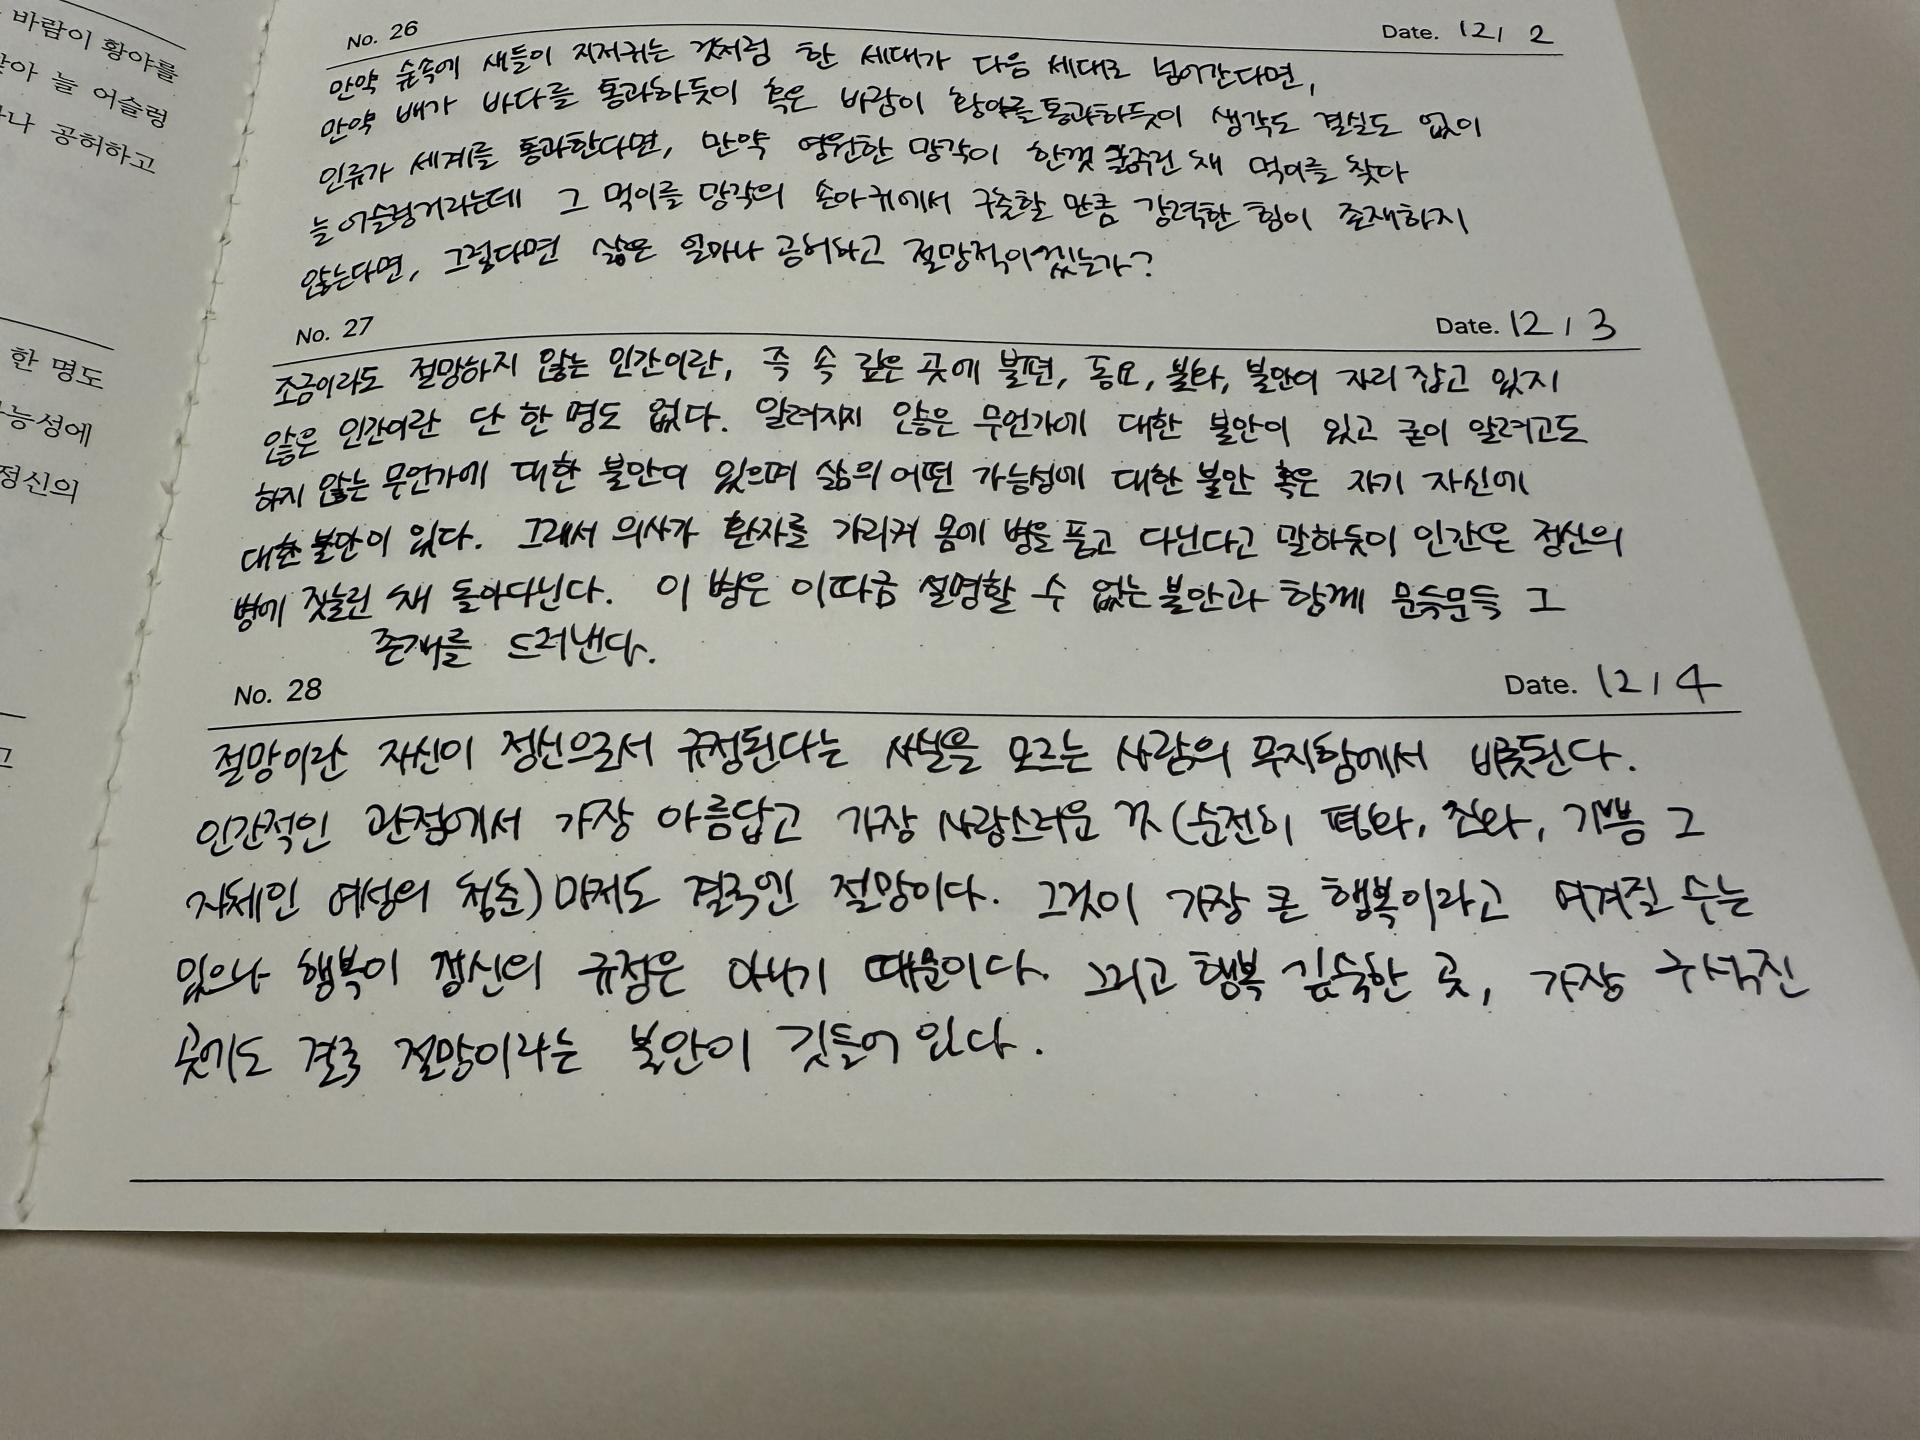 바람이 황야를
늘 어슬렁
공허하고
한 명도
능성에
정신의
No. 26
Date. 12 / 2
만약 숲속에 새들이 지저귀는 것처럼 한 세대가 다음 세대로 넘어간다면,
만약 배가 바다를 통과하듯이 혹은 바람이 황야를 통과하듯이 생각도 결실도 없이
인류가 세계를 통과한다면, 만약 영원한 망각이 한껏 굶주린 채 먹이를 찾다
늘 어슬렁거리는데 그 먹이를 망각의 손아귀에서 구출할 만큼 강력한 힘이 존재하지
않는다면, 그렇다면 삶은 얼마나 공허하고 절망적이겠는가?
No. 27
Date. 12 / 3
조금이라도 절망하지 않는 인간이란, 즉 속 깊은 곳에 불편, 동요, 불화, 불안이 자리 잡고 있지
않은 인간이란 단 한 명도 없다. 알려지지 않은 무언가에 대한 불안이 있고 굳이 알려고도
하지 않는 무언가에 대한 불안이 있으며 삶의 어떤 가능성에 대한 불안 혹은 자기 자신에
대한 불안이 있다. 그래서 의사가 환자를 가리켜 몸에 병을 품고 다닌다고 말하듯이 인간은 정신의
병에 짓눌린 채 돌아다닌다. 이 병은 이따금 설명할 수 없는 불안과 함께 문득문득 그
존재를 드러낸다.
No. 28
Date. 12 / 4
절망이란 자신이 정신으로서 규정된다는 사실을 모르는 사람의 무지함에서 비롯된다.
인간적인 관점에서 가장 아름답고 가장 사랑스러운 것 (순전히 평화, 조화, 기쁨 그
자체인 여성의 청춘) 마저도 결국엔 절망이다. 그것이 가장 큰 행복이라고 여겨질 수는
있으나 행복이 정신의 규정은 아니기 때문이다. 그리고 행복 깊숙한 곳, 가장 구석진
곳에도 결국 절망이라는 불안이 깃들어 있다.